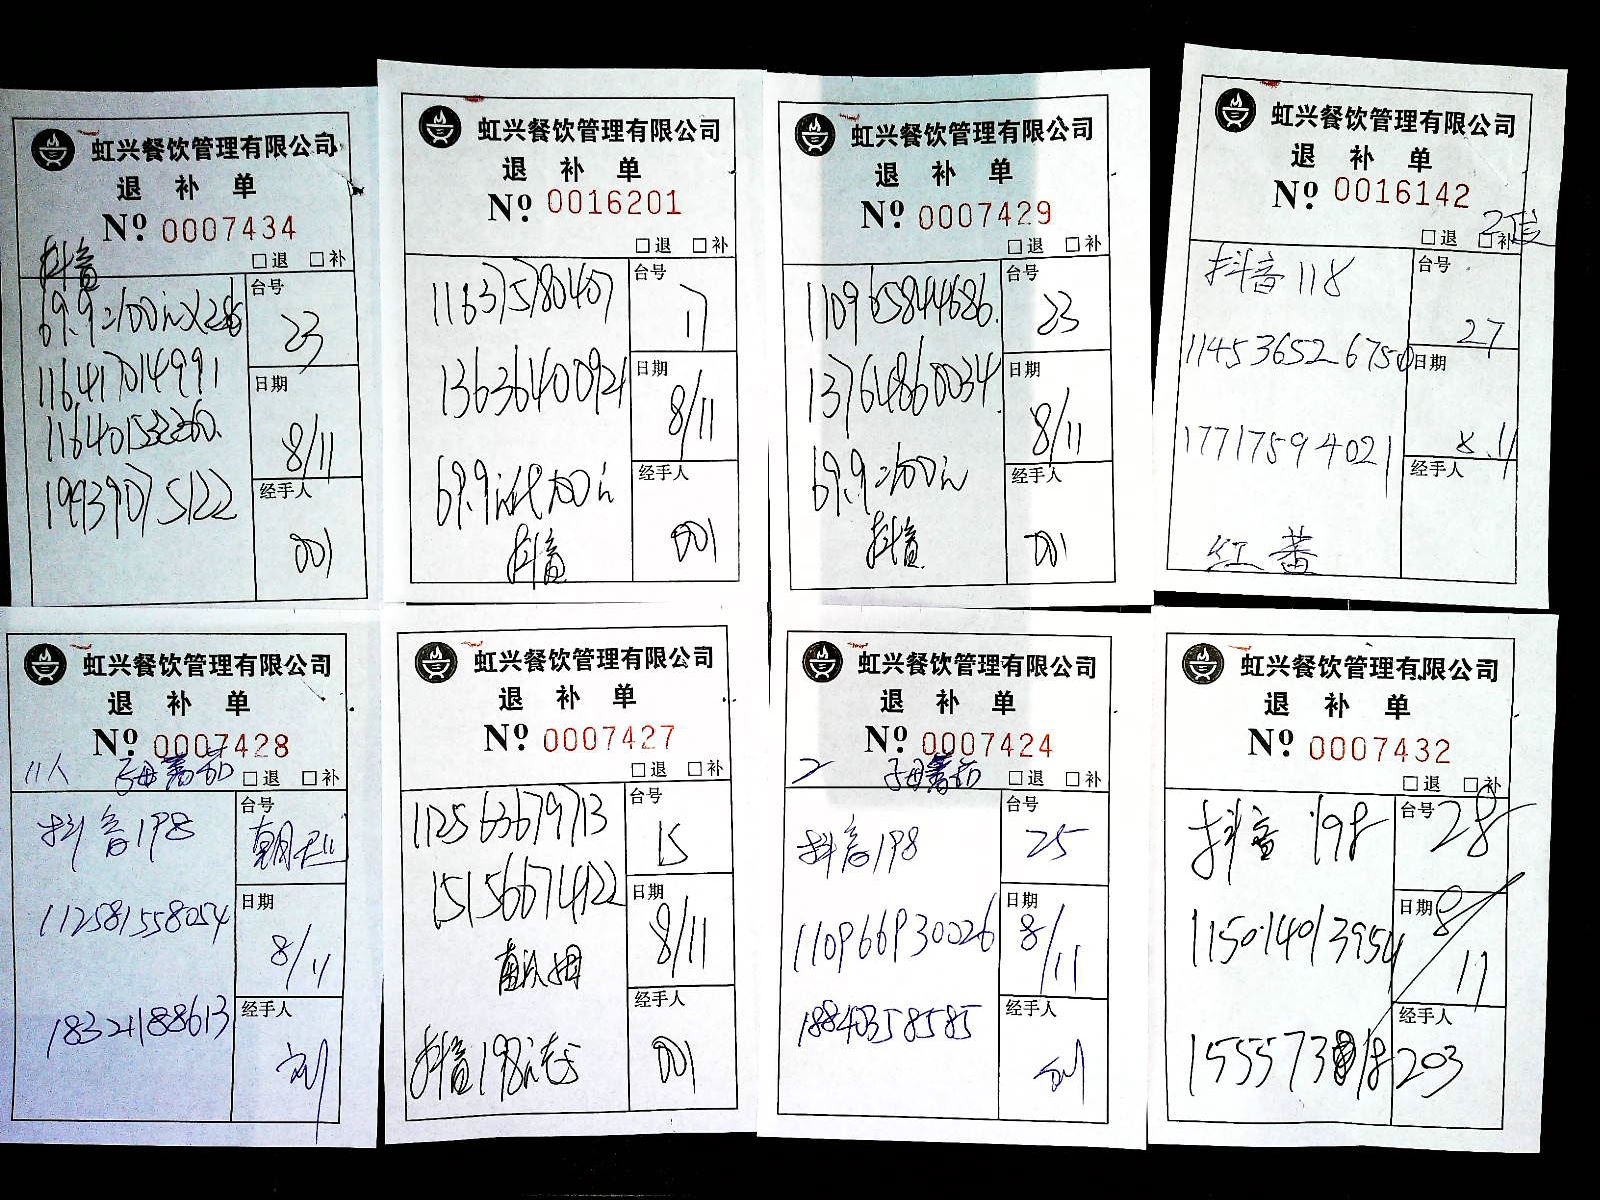 虹兴餐饮管理有限公司
退 补 单
Nº 0007434
抖音
□退 □补
69.9=100元X2张
116417014991
116401532360.
19939075122
台号
23
日期
8/11
经手人
001
虹兴餐饮管理有限公司
退 补 单
Nº 0016201
□退 □补
116375780407
13636400921
69.9元代100元
抖音
台号
17
日期
8/11
经手人
001
虹兴餐饮管理有限公司
退 补 单
Nº 0007429
□退 □补
110965844686.
13764860034.
69.9=100元
抖音
台号
23
日期
8/11
经手人
001
虹兴餐饮管理有限公司
退 补 单
Nº 0016142
2位
□退 □补
抖音118
114536526750
17717594021
红 蕃
台号
27
日期
8.11
经手人
虹兴餐饮管理有限公司
退 补 单
Nº 0007428
11人 子母蕃茄
□退 □补
抖音198
112581558054
18321188613
台号
日期
8/11
经手人
刘
虹兴餐饮管理有限公司
退 补 单
Nº 0007427
□退 □补
112563679713
15156674122
抖音198元
台号
15
日期
8/11
经手人
001
虹兴餐饮管理有限公司
退 补 单
Nº 0007424
2 子母蕃茄
□退 □补
抖音198
110966930026
18840358585
台号
25
日期
8/11
经手人
刘
虹兴餐饮管理有限公司
退 补 单
Nº 0007432
□退 □补
抖音 198
115014013954
台号
28
日期
8/11
经手人
203